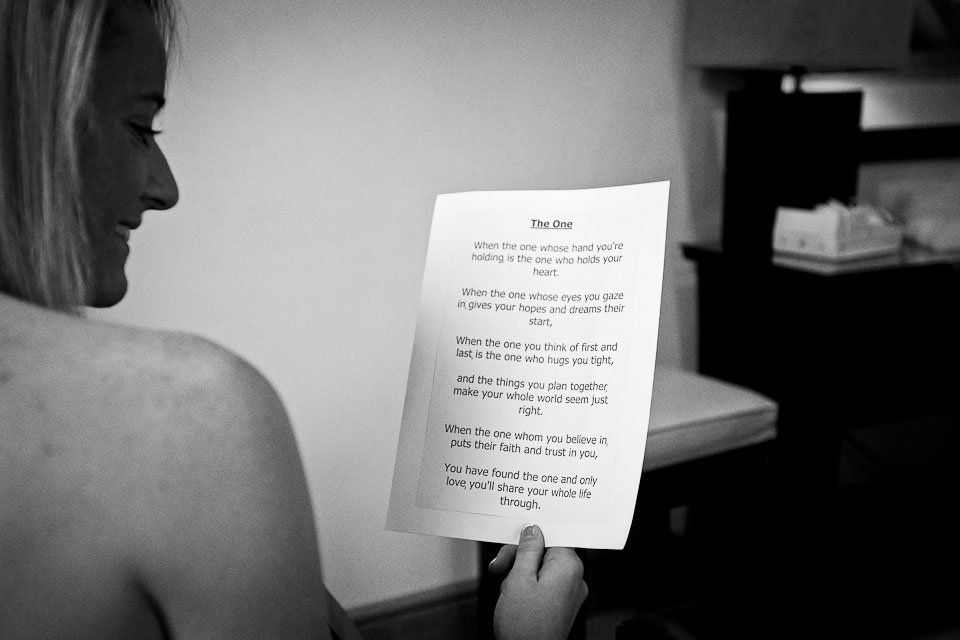 The One
When the one whose hand you're
holding, is the one who holds your
heart.
When the one whose eyes you gaze
in, gives your hopes and dreams their
start,
When the one you think of first and
last, is the one who hugs you tight,
and the things you plan together,
make your whole world seem just
right.
When the one whom you believe in,
puts their faith and trust in you,
You have found the one and only
love, you'll share your whole life
through.